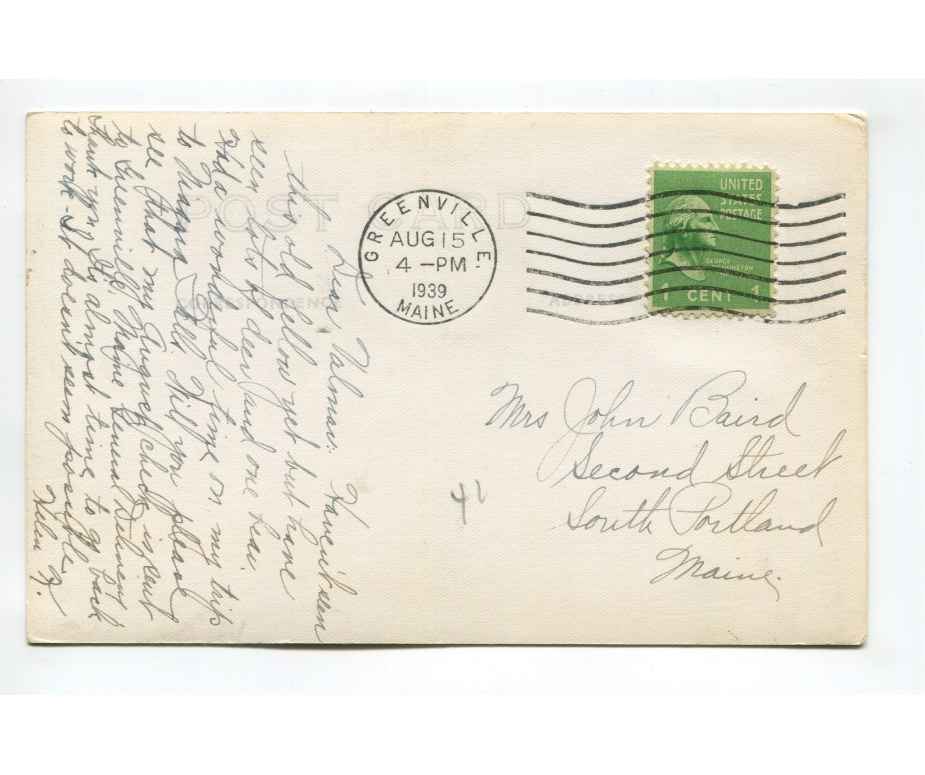 POST CARD
CORRESPONDENCE
ADDRESS
GREENVILLE
AUG 15
4 -PM
1939
MAINE
UNITED
STATES
POSTAGE
GEORGE
WASHINGTON
1 CENT 1
Mrs John Baird
Second Street
South Portland
Maine.
Dear Haven't seen
this old fellow yet but have
seen lots of deer and one bear.
Had a wonderful time on my trip
to Niagara Falls. Will you please
see that my August check is sent
to Greenville, Maine General Delivery
Thank you. It's almost time to go back
to work. It doesn't seem possible.
Helen